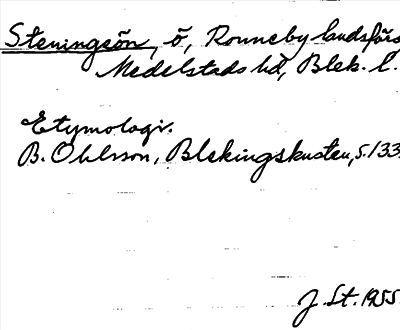 Steningeön, ö, Ronneby landsförs
Medelstads hd, Blek. l.
Etymologi.
B. Ohlsson, Blekingskusten, s. 133.
J. St. 1955.